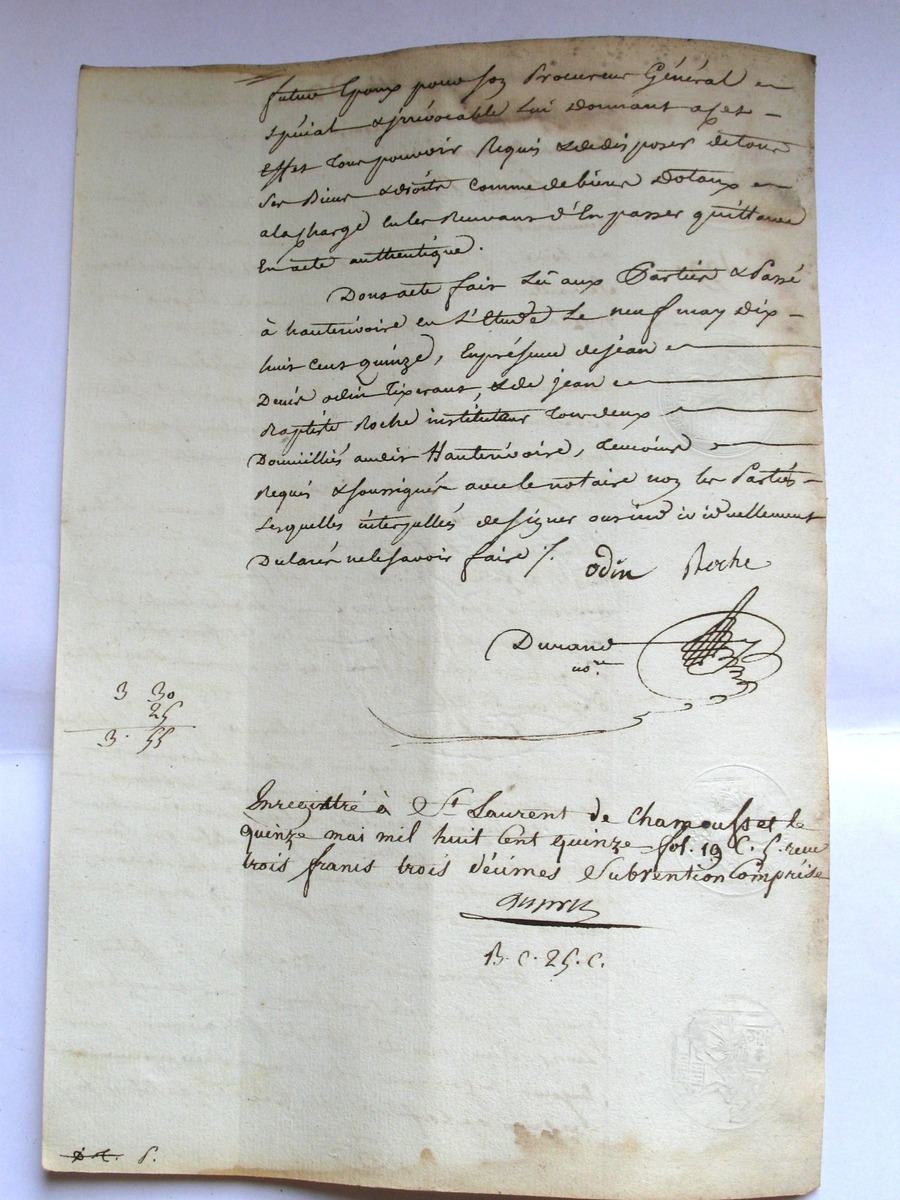 futur Epoux pour son Procureur Général et
spécial & irrévocable lui donnant a cet
Effet tous pouvoir Requis & de disposer de tous
ses Biens & droits comme de biens Dotaux et
a la charge en les Recevans d'En passer quittance
En acte authentique.
Dont acte fait Lû aux Parties & Passé
à hauterivoire en L'Etude Le neuf may dix-
huit cent quinze, En présence de jean
Denis odin Tixerant, & de jean
Baptiste Roche instituteur tous deux
Domiciliés audit Hauterivoire, temoins
Requis & soussignés avec le notaire non les Parties
Lesquelles interpellées de signer ont individuellement
Declarés ne le savoir faire ./.
odin Roche
Durand
nore.
3 30
25
3. 55
Enregistré à St Laurent de Chamousset le
quinze mai mil huit Cent quinze fol. 19 C. 5. reçu
trois francs trois décimes Subvention Comprise
B. C. 25. C.